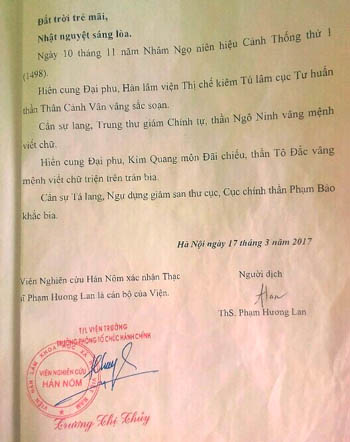 Đất trời trẻ mãi,
Nhật nguyệt sáng lòa.
Ngày 10 tháng 11 năm Nhâm Ngọ niên hiệu Cảnh Thống thứ 1
(1498).
Hiển cung Đại phu, Hàn lâm viện Thị chế kiêm Tú lâm cục Tư huấn
thần Thân Cảnh Vân vâng sắc soạn.
Cẩn sự lang, Trung thư giám Chính tự, thần Ngô Ninh vâng mệnh
viết chữ.
Hiển cung Đại phu, Kim Quang môn Đãi chiếu, thần Tô Đắc vâng
mệnh viết chữ triện trên trán bia.
Cẩn sự Tá lang, Ngự dụng giám san thư cục, Cục chính thần Phạm Bảo
khắc bia.
Hà Nội ngày 17 tháng 3 năm 2017
Viện Nghiên cứu Hán Nôm xác nhận Thạc
sĩ Phạm Hương Lan là cán bộ của Viện.
Người dịch
ThS. Phạm Hương Lan
T/L VIỆN TRƯỞNG
TRƯỞNG PHÒNG TỔ CHỨC HÀNH CHÍNH
VIỆN NGHIÊN CỨU
HÁN NÔM
Trương Thị Thủy